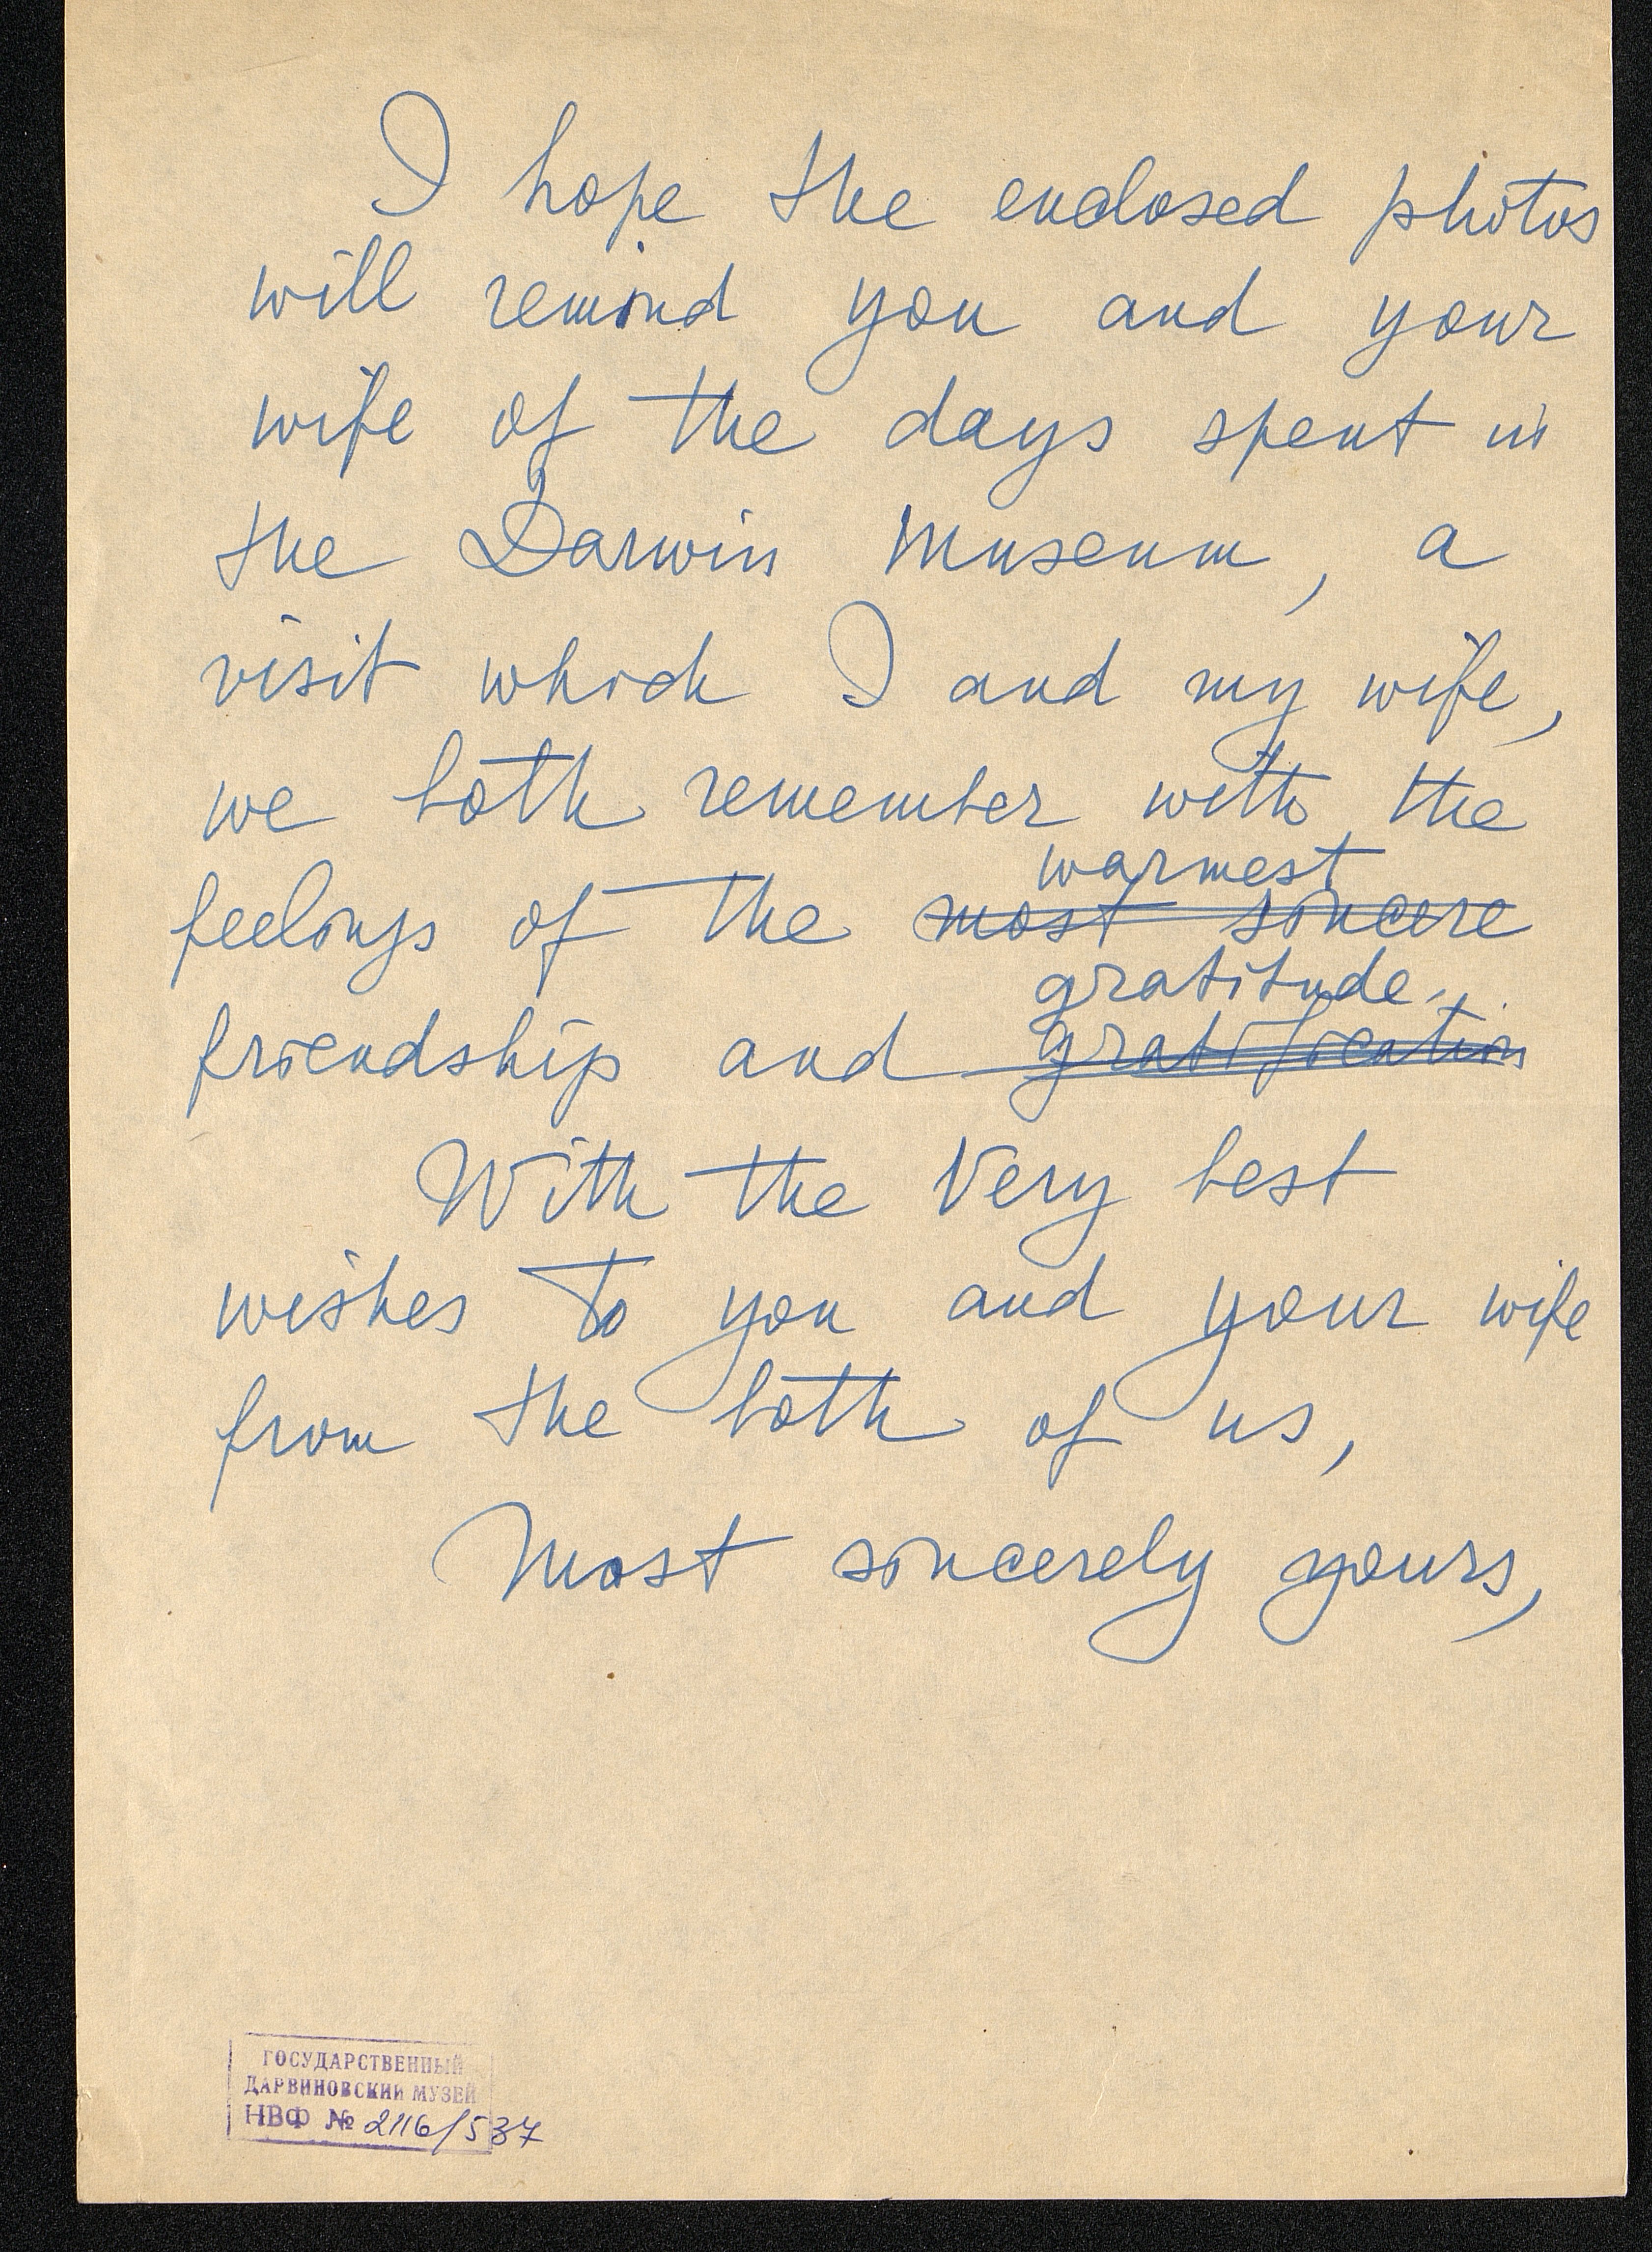 I hope the enclosed photos
will remind you and your
wife of the days spent in
the Darwin Museum, a
visit which I and my wife,
we both remember with the
warmest
feelings of the most sincere
gratitude.
friendship and gratification
With the Very best
wishes to you and your wife
from the both of us,
Most sincerely yours,
ГОСУДАРСТВЕННЫЙ
ДАРВИНОВСКИЙ МУЗЕЙ
НВФ № 2116/537